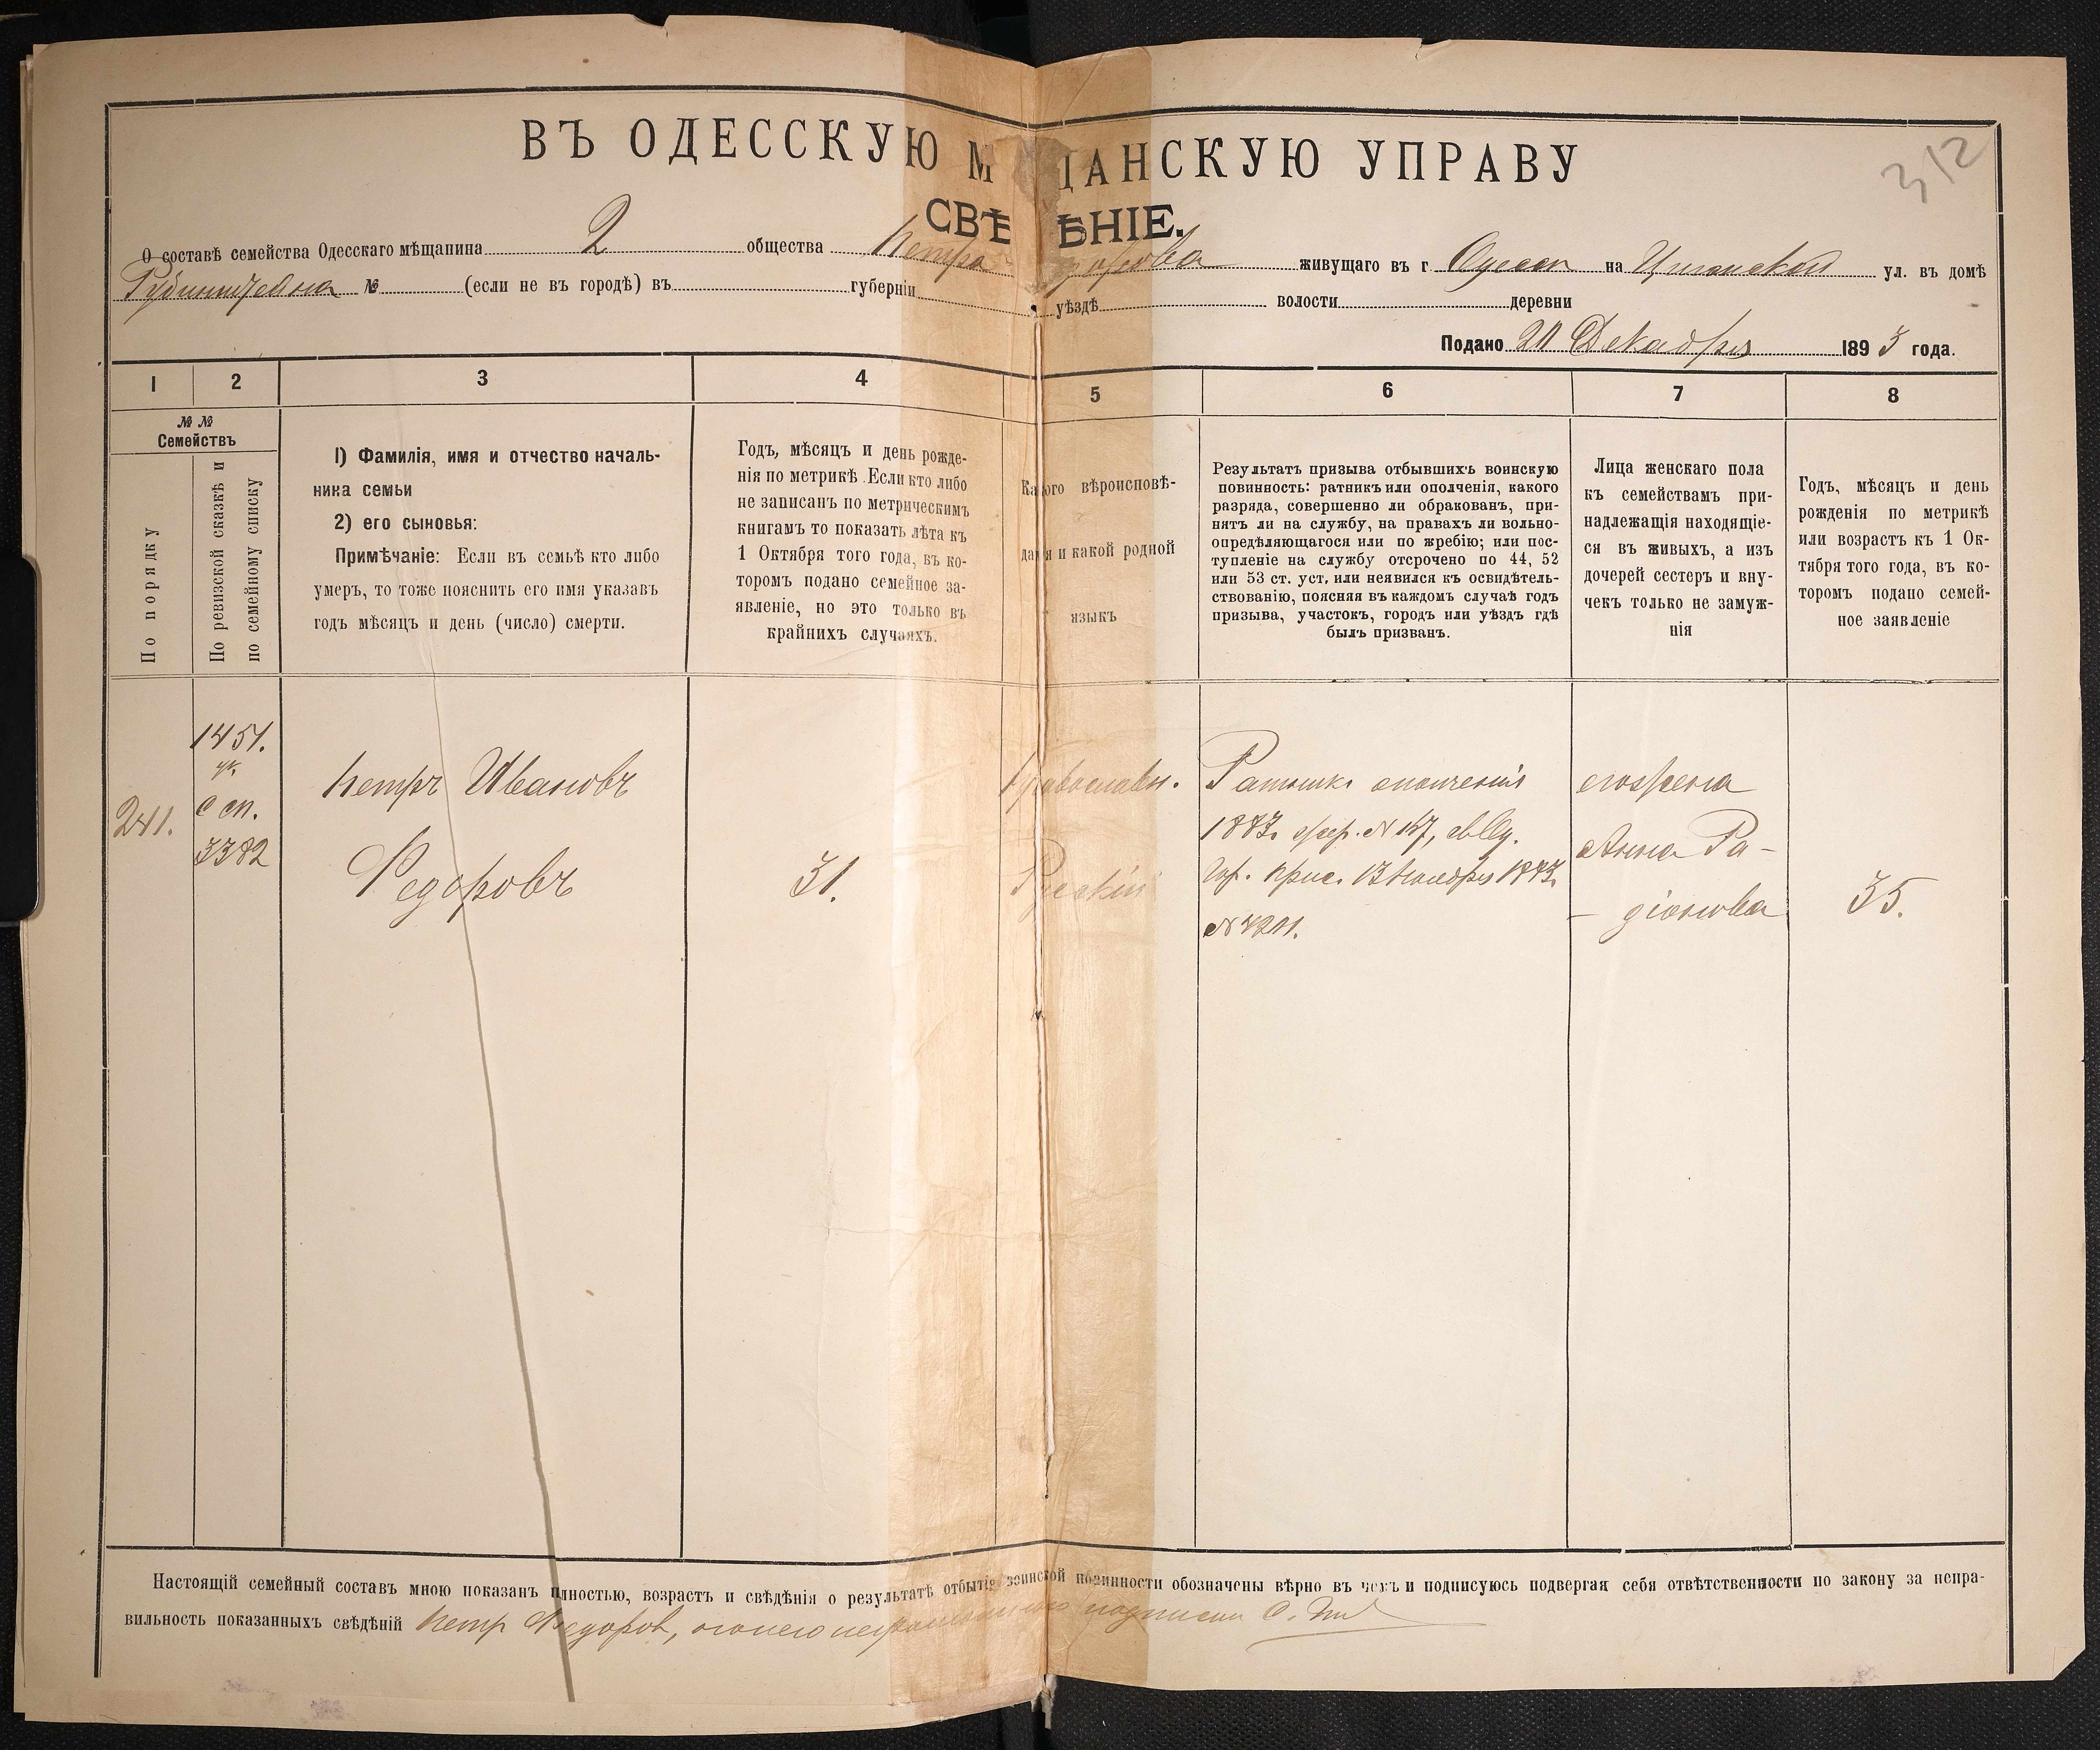 ВЪ ОДЕССКУЮ М ЩАНСКУЮ УПРАВУ
312
СВѢ ѢНІЕ.
О составѣ семейства Одесскаго мѣщанина 2 общества Петра Федорова живущаго въ г. Одессе на Цыганской ул. въ домѣ
Рубинштейна № (если не въ городѣ) въ губерніи уѣздѣ волости деревни
Подано Декабря 1893 года.
1 2 3 4 5 6 7 8
№ №
Семействъ
По порядку
По ревизской сказкѣ и
по семейному списку
1) Фамилія, имя и отчество началь-
ника семьи
2) его сыновья:
Примѣчаніе: Если въ семьѣ кто либо
умеръ, то тоже пояснить его имя указавъ
годъ мѣсяцъ и день (число) смерти.
Годъ, мѣсяцъ и день рожде-
нія по метрикѣ. Если кто либо
не записанъ по метрическимъ
книгамъ то показать лѣта къ
1 Октября того года, въ ко-
торомъ подано семейное за-
явленіе, но это только въ
крайнихъ случаяхъ.
Какого вѣроисповѣ-
данія и какой родной
языкъ
Результатъ призыва отбывшихъ воинскую
повинность: ратникъ или ополченія, какого
разряда, совершенно ли обракованъ, при-
нятъ ли на службу, на правахъ ли вольно-
опредѣляющагося или по жребію; или пос-
тупленіе на службу отсрочено по 44, 52
или 53 ст. уст. или неявился къ освидѣтель-
ствованію, поясняя въ каждомъ случаѣ годъ
призыва, участокъ, городъ или уѣздъ гдѣ
былъ призванъ.
Лица женскаго пола
къ семействамъ при-
надлежащія находящіе-
ся въ живыхъ, а изъ
дочерей сестеръ и вну-
чекъ только не замуж-
нія
Годъ, мѣсяцъ и день
рожденія по метрикѣ
или возрастъ къ 1 Ок-
тября того года, въ ко-
торомъ подано семей-
ное заявленіе
241.
1451.
ук.
с сп.
3382
Петръ Ивановъ
Федоровъ
31.
Православн.
Русскій
Ратникъ ополченія
1883. жер. №
Гор. Прис. 13 Ноября 1883.
его жена
Анна Ра-
- діонова
35.
Настоящій семейный составъ мною показанъ полностью, возрастъ и свѣдѣнія о результатѣ отбытія воинской повинности обозначены вѣрно въ чемъ и подписуюсь подвергая себя отвѣтственности по закону за непра-
вильность показанныхъ свѣдѣній Петр Федоров,